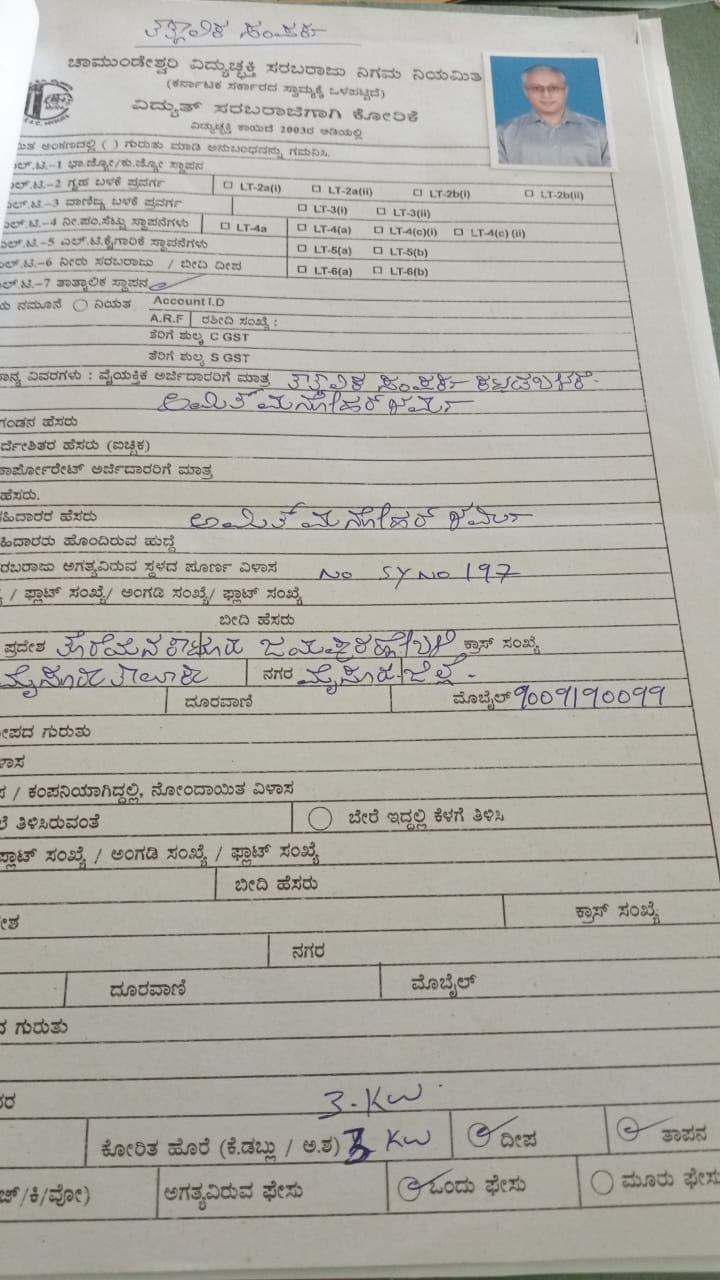 ತತ್ಕಾಲಿಕ ಸಂಪರ್ಕ
ಚಾಮುಂಡೇಶ್ವರಿ ವಿದ್ಯುಚ್ಛಕ್ತಿ ಸರಬರಾಜು ನಿಗಮ ನಿಯಮಿತ
(ಕರ್ನಾಟಕ ಸರ್ಕಾರದ ಸ್ವಾಮ್ಯಕ್ಕೆ ಒಳಪಟ್ಟಿದೆ)
ವಿದ್ಯುತ್ ಸರಬರಾಜಿಗಾಗಿ ಕೋರಿಕೆ
ವಿದ್ಯುಚ್ಛಕ್ತಿ ಕಾಯಿದೆ 2003ರ ಅಡಿಯಲ್ಲಿ
ಅಂಕಣದಲ್ಲಿ ( ) ಗುರುತು ಮಾಡಿ ಅನುಬಂಧವನ್ನು ಗಮನಿಸಿ.
ಎಲ್.ಟಿ.-1 ಭಾ.ಜ್ಯೋ/ಕು.ಜ್ಯೋ ಸ್ಥಾಪನ
ಎಲ್.ಟಿ.-2 ಗೃಹ ಬಳಕೆ ಪ್ರವರ್ಗ □ LT-2a(i) □ LT-2a(ii) □ LT-2b(i) □ LT-2b(ii)
ಎಲ್.ಟಿ.-3 ವಾಣಿಜ್ಯ ಬಳಕೆ ಪ್ರವರ್ಗ □ LT-3(i) □ LT-3(ii)
ಎಲ್.ಟಿ.-4 ನೀ.ಪಂ.ಸೆಟ್ಟು ಸ್ಥಾಪನೆಗಳು □ LT-4a □ LT-4(a) □ LT-4(c)(i) □ LT-4(c) (ii)
ಎಲ್.ಟಿ.-5 ಎಲ್.ಟಿ.ಕೈಗಾರಿಕೆ ಸ್ಥಾಪನೆಗಳು □ LT-5(a) □ LT-5(b)
ಎಲ್.ಟಿ.-6 ನೀರು ಸರಬರಾಜು / ಬೀದಿ ದೀಪ □ LT-6(a) □ LT-6(b)
ಎಲ್.ಟಿ.-7 ತಾತ್ಕಾಲಿಕ ಸ್ಥಾಪನ
ನಮೂನೆ ನಿಯತ Account I.D
A.R.F ರಶೀದಿ ಸಂಖ್ಯೆ :
ತೆರಿಗೆ ಶುಲ್ಕ C GST
ತೆರಿಗೆ ಶುಲ್ಕ S GST
ವಿವರಗಳು : ವೈಯಕ್ತಿಕ ಅರ್ಜಿದಾರರಿಗೆ ಮಾತ್ರ ತತ್ಕಾಲಿಕ ಸಂಪರ್ಕ ಕಟ್ಟಡಬಳಕೆ.
ಅಮಿತ್ ಮನೋಹರ್ ಶರ್ಮಾ
ಗಂಡನ ಹೆಸರು
ಹೆಸರು (ಐಚ್ಛಿಕ)
ಕಾರ್ಪೋರೇಟ್ ಅರ್ಜಿದಾರರಿಗೆ ಮಾತ್ರ
ಹೆಸರು.
ಸಹಿದಾರರ ಹೆಸರು ಅಮಿತ್ ಮನೋಹರ್ ಶರ್ಮಾ
ಸಹಿದಾರರು ಹೊಂದಿರುವ ಹುದ್ದೆ
ಸರಬರಾಜು ಅಗತ್ಯವಿರುವ ಸ್ಥಳದ ಪೂರ್ಣ ವಿಳಾಸ NO SYNO 197
/ ಫ್ಲಾಟ್ ಸಂಖ್ಯೆ/ ಅಂಗಡಿ ಸಂಖ್ಯೆ/ ಫ್ಲಾಟ್ ಸಂಖ್ಯೆ
ಬೀದಿ ಹೆಸರು
ಪ್ರದೇಶ ಜಯಪುರಹೋಬಳಿ ಕ್ರಾಸ್ ಸಂಖ್ಯೆ
ಮೈಸೂರು ತಾಲೂಕು ನಗರ ಮೈಸೂರು ಜಿಲ್ಲೆ.
ದೂರವಾಣಿ ಮೊಬೈಲ್ 9009190099
ಗುರುತು
/ ಕಂಪನಿಯಾಗಿದ್ದಲ್ಲಿ, ನೋಂದಾಯಿತ ವಿಳಾಸ
ತಿಳಿಸಿರುವಂತೆ ಬೇರೆ ಇದ್ದಲ್ಲಿ ಕೆಳಗೆ ತಿಳಿಸಿ
ಪ್ಲಾಟ್ ಸಂಖ್ಯೆ / ಅಂಗಡಿ ಸಂಖ್ಯೆ / ಫ್ಲಾಟ್ ಸಂಖ್ಯೆ
ಬೀದಿ ಹೆಸರು
ಕ್ರಾಸ್ ಸಂಖ್ಯೆ
ನಗರ
ದೂರವಾಣಿ ಮೊಬೈಲ್
ಗುರುತು
3-KW
ಕೋರಿತ ಹೊರೆ (ಕೆ.ಡಬ್ಲು / ಅ.ಶ) 3 KW ದೀಪ ತಾಪನ
ಅಗತ್ಯವಿರುವ ಫೇಸು ಒಂದು ಫೇಸು ಮೂರು ಫೇಸು